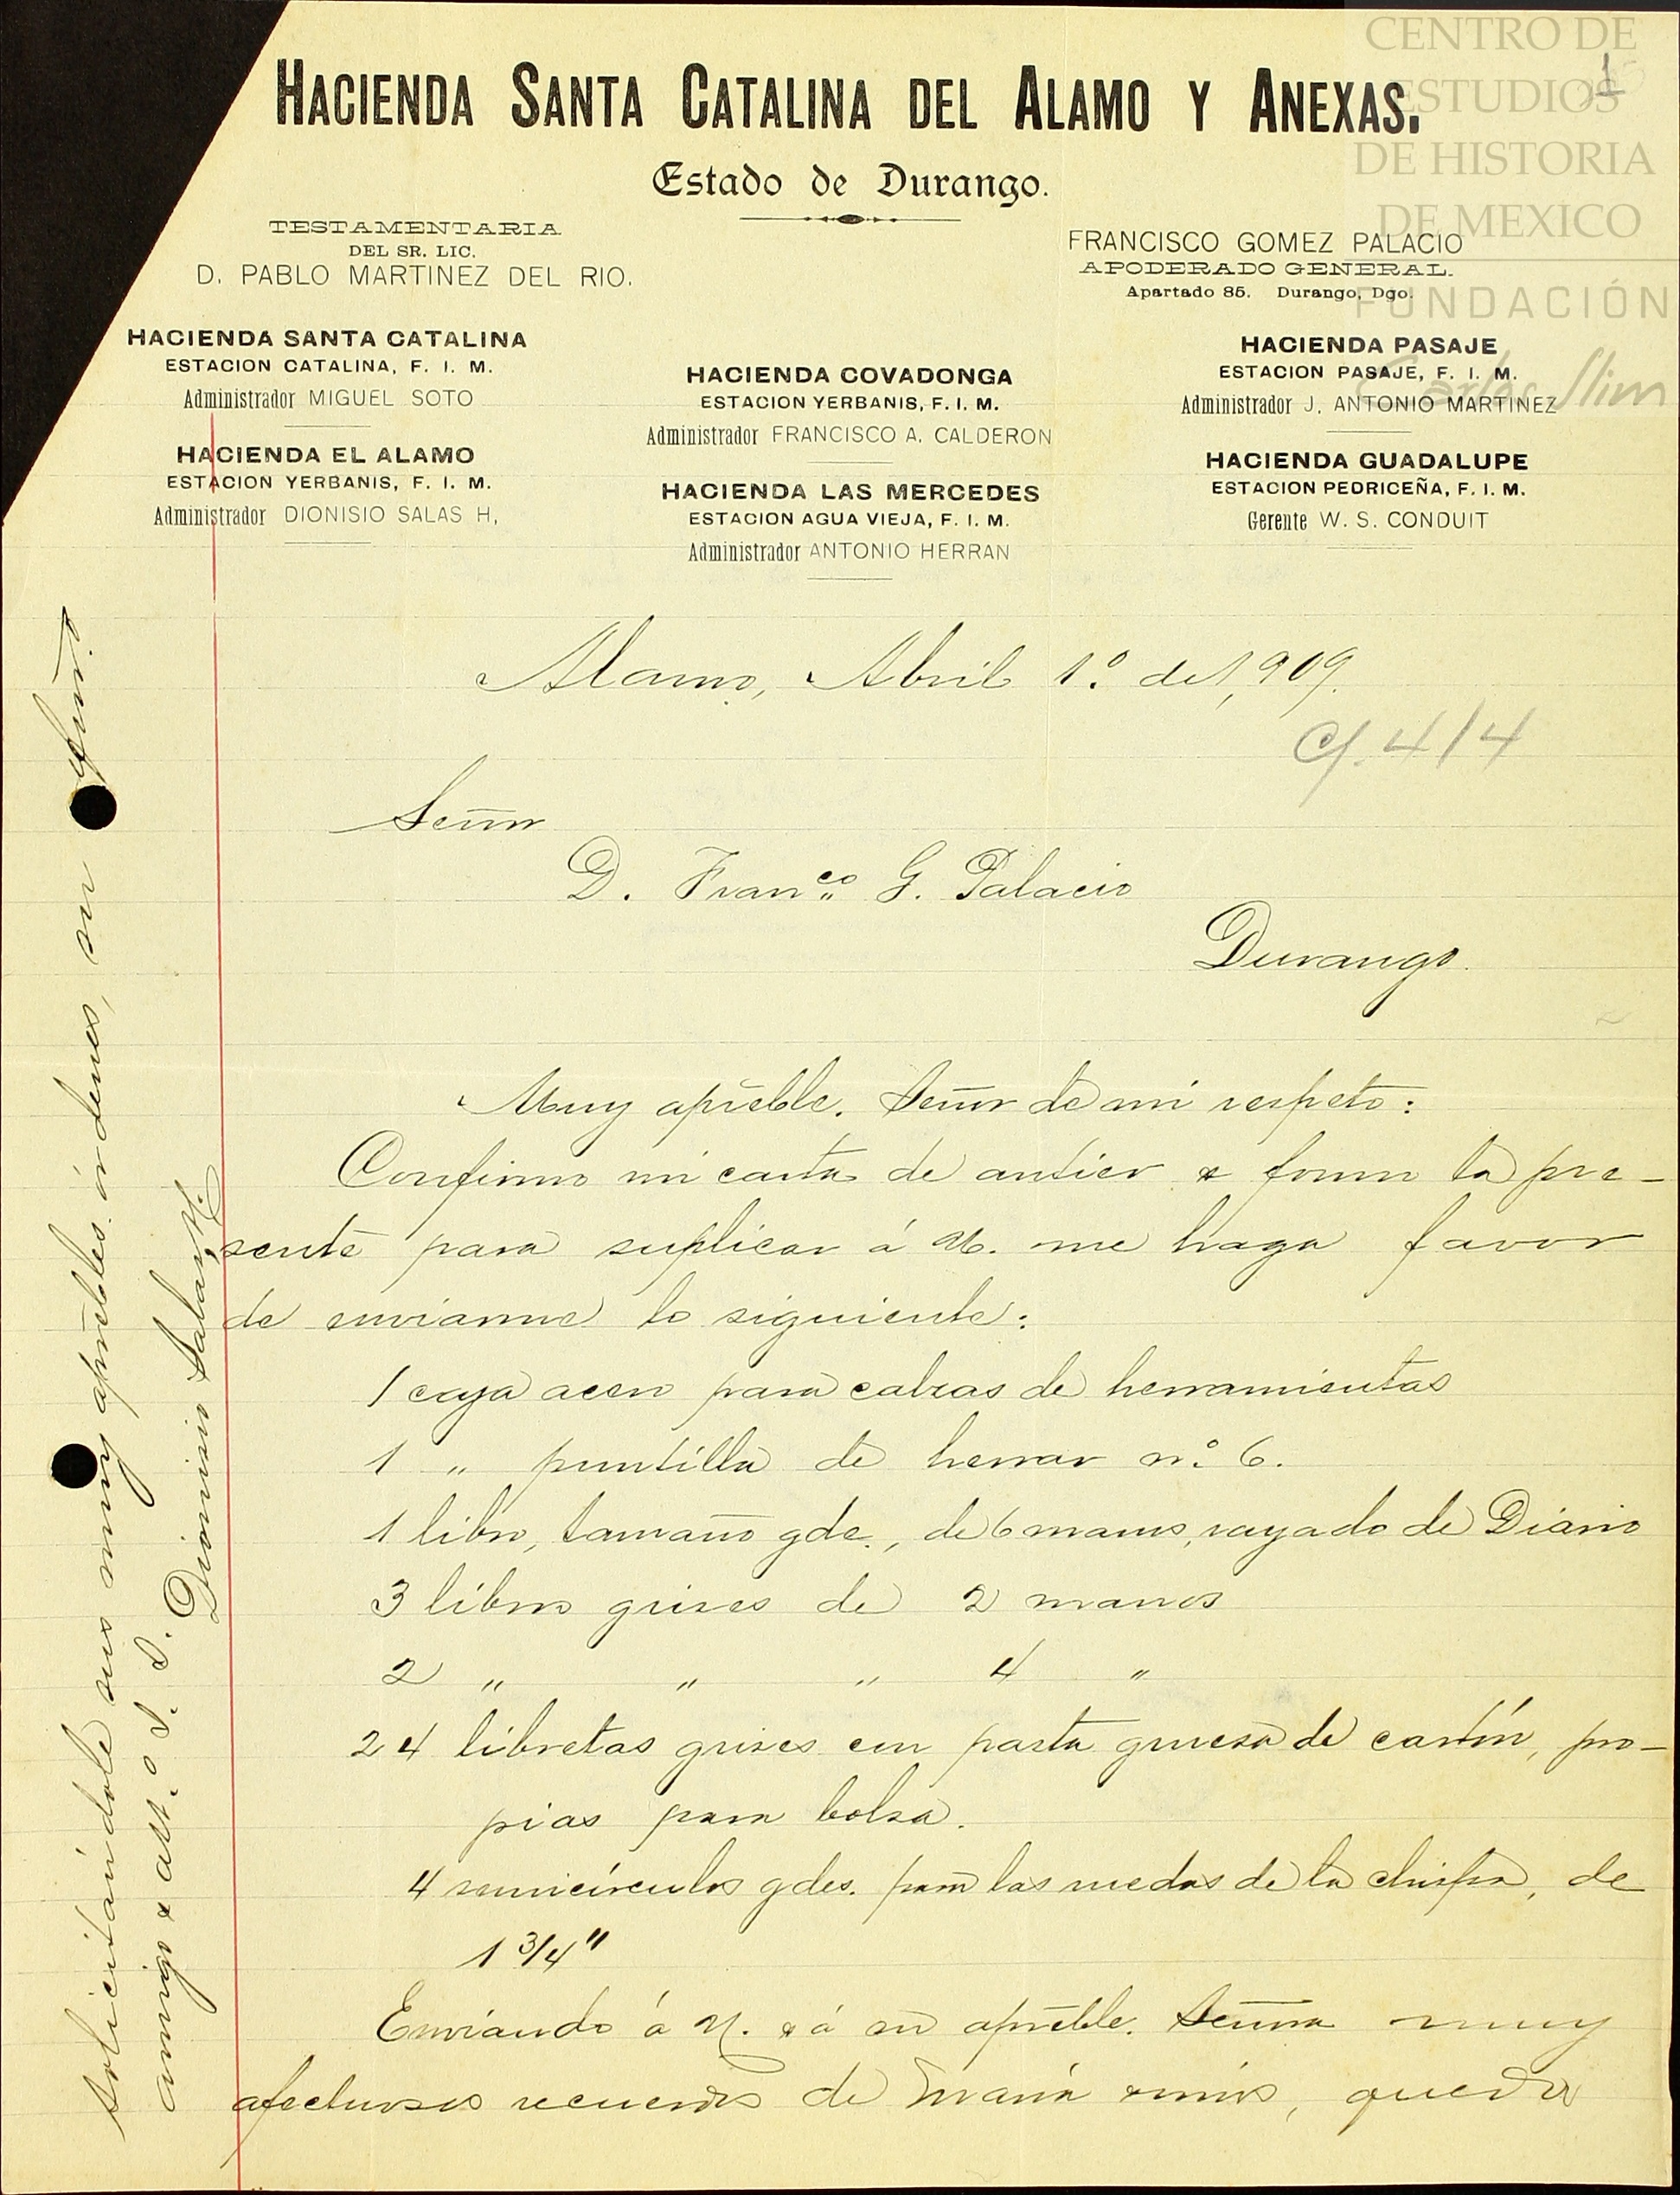 CENTRO DE
ESTUDIOS
DE HISTORIA
DE MEXICO
FUNDACIÓN
Carlos Slim
1
HACIENDA SANTA CATALINA DEL ALAMO Y ANEXAS.
Estado de Durango.
TESTAMENTARIA
DEL SR. LIC.
D. PABLO MARTINEZ DEL RIO.
FRANCISCO GOMEZ PALACIO
APODERADO GENERAL.
Apartado 85. Durango, Dgo.
HACIENDA SANTA CATALINA
ESTACION CATALINA, F. I. M.
Administrador MIGUEL SOTO
HACIENDA EL ALAMO
ESTACION YERBANIS, F. I. M.
Administrador DIONISIO SALAS H,
HACIENDA COVADONGA
ESTACION YERBANIS, F. I. M.
Administrador FRANCISCO A. CALDERON
HACIENDA LAS MERCEDES
ESTACION AGUA VIEJA, F. I. M.
Administrador ANTONIO HERRAN
HACIENDA PASAJE
ESTACION PASAJE, F. I. M.
Administrador J. ANTONIO MARTINEZ
HACIENDA GUADALUPE
ESTACION PEDRICEÑA, F. I. M.
Gerente W. S. CONDUIT
Alamo, Abril 1.º de 1,909.
C/. 4/4
Señor
D. Fran.co G. Palacio
Durango.
Muy apreble. Señor de mi respeto:
Confirmo mi carta de antier & formo la pre-
sente para suplicar á U. me haga favor
de enviarme lo siguiente:
1 caja acero para calzas de herramientas
1 " puntilla de herrar n.º 6.
1 libro, tamaño gde., de 6 manos, rayado de Diario
3 libros grises de 2 manos
2 " " " 4 "
24 libretas grises con pasta gruesa de cartón, pro-
pias para bolsa.
4 semicírculos gdes. para las ruedas de la chispa, de
1 3/4"
Enviando á U. & á su apreble. Señora muy
afectuosos recuerdos de María & míos, queda
solicitándole sus muy aprebles. órdenes, su afmo.
amigo & att.º S. S. Dionisio Salas H.